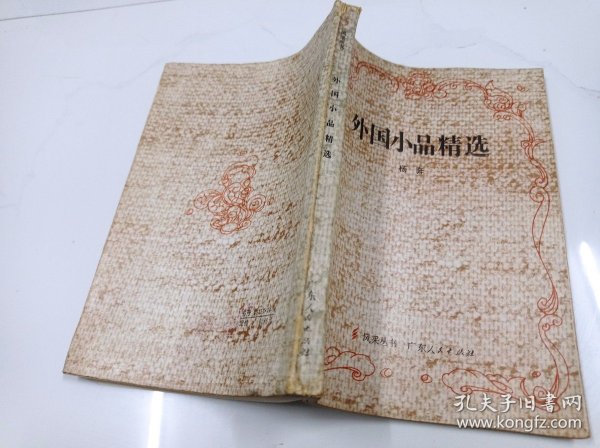 外国小品精选
杨奔
风采丛书 广东人民出版社
外国小品精选
广东人民出版社
孔夫子旧书网
www.kongfz.com